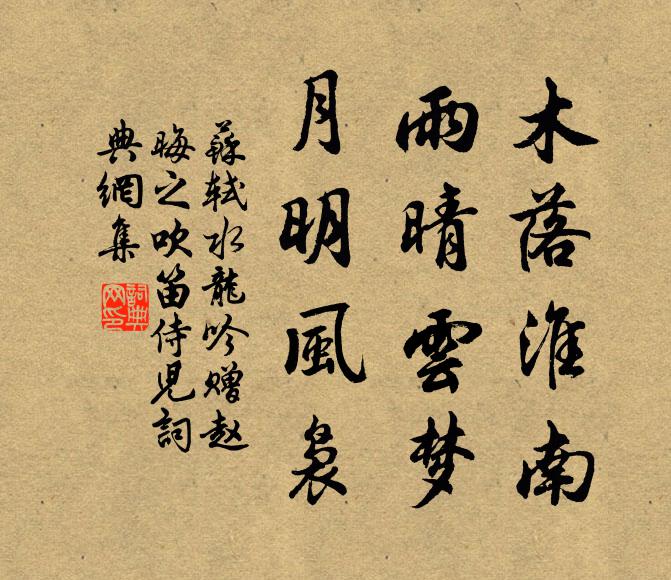 木落淮南
雨晴雲梦
月明風裊
蘇軾水龍吟赠赵
晦之吹笛侍児詞
典網集
詞典
网印